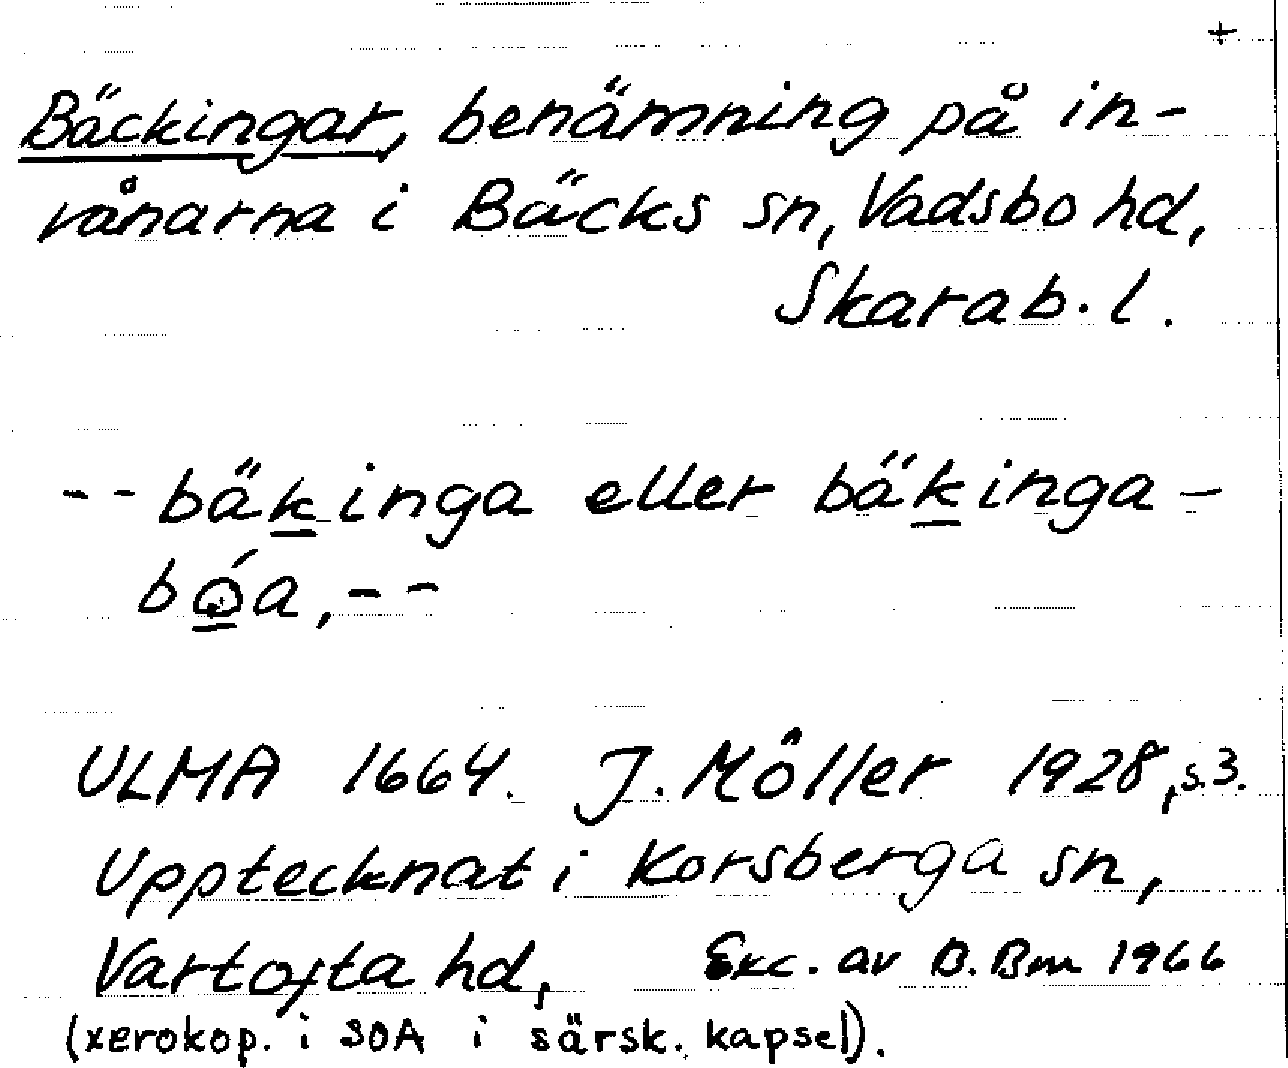 +
Bäckingar, benämning på in-
vånarna i Bäcks sn, Vadsbo hd,
Skarab. l.
-- bäkinga eller bäkinga-
bǫ́a, --
ULMA 1664. J. Möller 1928, s.3.
Upptecknat i Korsberga sn,
Vartofta hd, Exc. av B. Bm 1966
(xerokop. i SOA i särsk. kapsel).